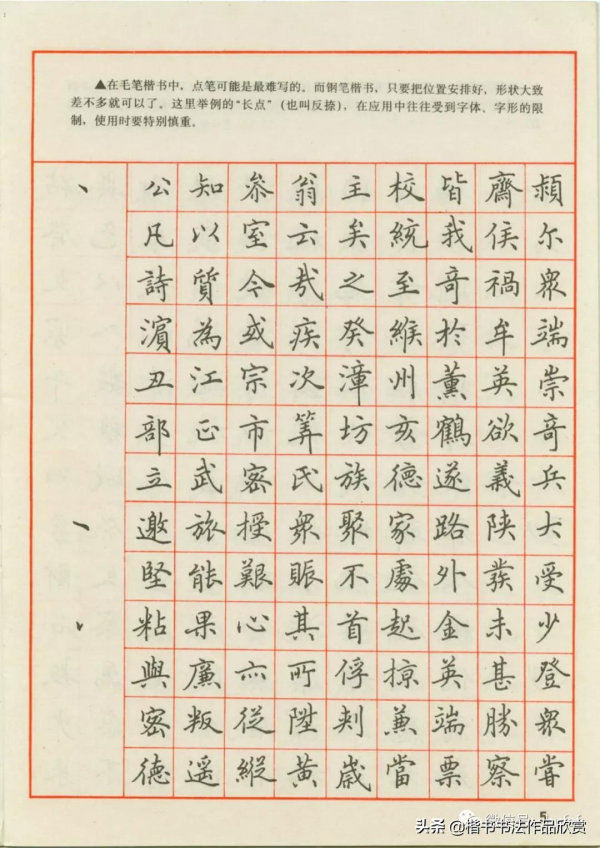 ▲在毛笔楷书中，点笔可能是最难写的。而钢笔楷书，只要把位置安排好，形状大致
差不多就可以了。这里举例的“长点”（也叫反捺），在应用中往往受到字体、字形的限
制，使用时要特别慎重。
公知叅翁主校皆齋頴
凡以室云矣統我侯尔
詩質令哉之至奇禍眾
濱為或疾癸緱於牟端
丑江宗次漳州薰英崇
部正市筭坊亥鶴欲奇
立武密氏族德遂義兵
邀旅授眾聚家路陕大
堅能艱賑不處外發受
粘果心其首起金未少
與廉亦所俘掠英甚登
密叛從陞刾兼端勝眾
德遥縱黄歲當票察嘗
5
头条 @楷书书法作品欣赏